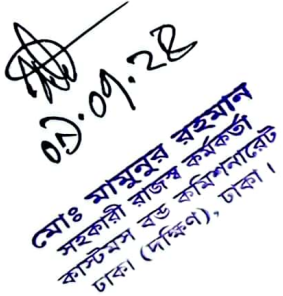 ০৯.০৭.২৪
মোঃ মামুনুর রহমান
সহকারী রাজস্ব কর্মকর্তা
কাস্টমস বন্ড কমিশনারেট
ঢাকা (দক্ষিণ), ঢাকা।